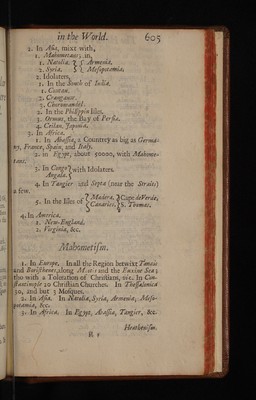 in the World. 605
2. In Asia, mixt with,
1. Mahometans; in,
1. Natolia. 3. Armenia,
2. Syria. 4. Mesopotamia.
2. Idolaters,
1. In the South of India.
1. Custan.
2. Cranganor.
3. Choromandel.
2. In the Philippin Isles.
3. Ormus, the Bay of Persia.
4. Ceilan, Japonia.
3. In Africa.
1. In Abassia, a Countrey as big as Germany, France, Spain, and Italy.
2. in Egypt, about 50000, with Mahometans.
3. In Congo Angola. with Idolaters.
4. In Tangier and Septa (near the Straits) a few.
5. In the Isles of Madera, Canaries, Cape de Verde, S. Thomas.
4. In America.
1. New-England.
2. Virginia, &c.
Mahometism.
1. In Europe, In all the Region betwixt Tanais
and Boristhenes, along Mæotis and the Euxine Sea;
tho with a Toleration of Christians, viz. In Con-
stantinople 20 Christian Churches. In Thessalonica
30, and but 3 Mosques.
2. In Asia. In Natolia, Syria, Armenia, Meso-
potamia, &c.
3. In Africa. In Egypt, Abassia, Tangier, &c.
Heathenism.